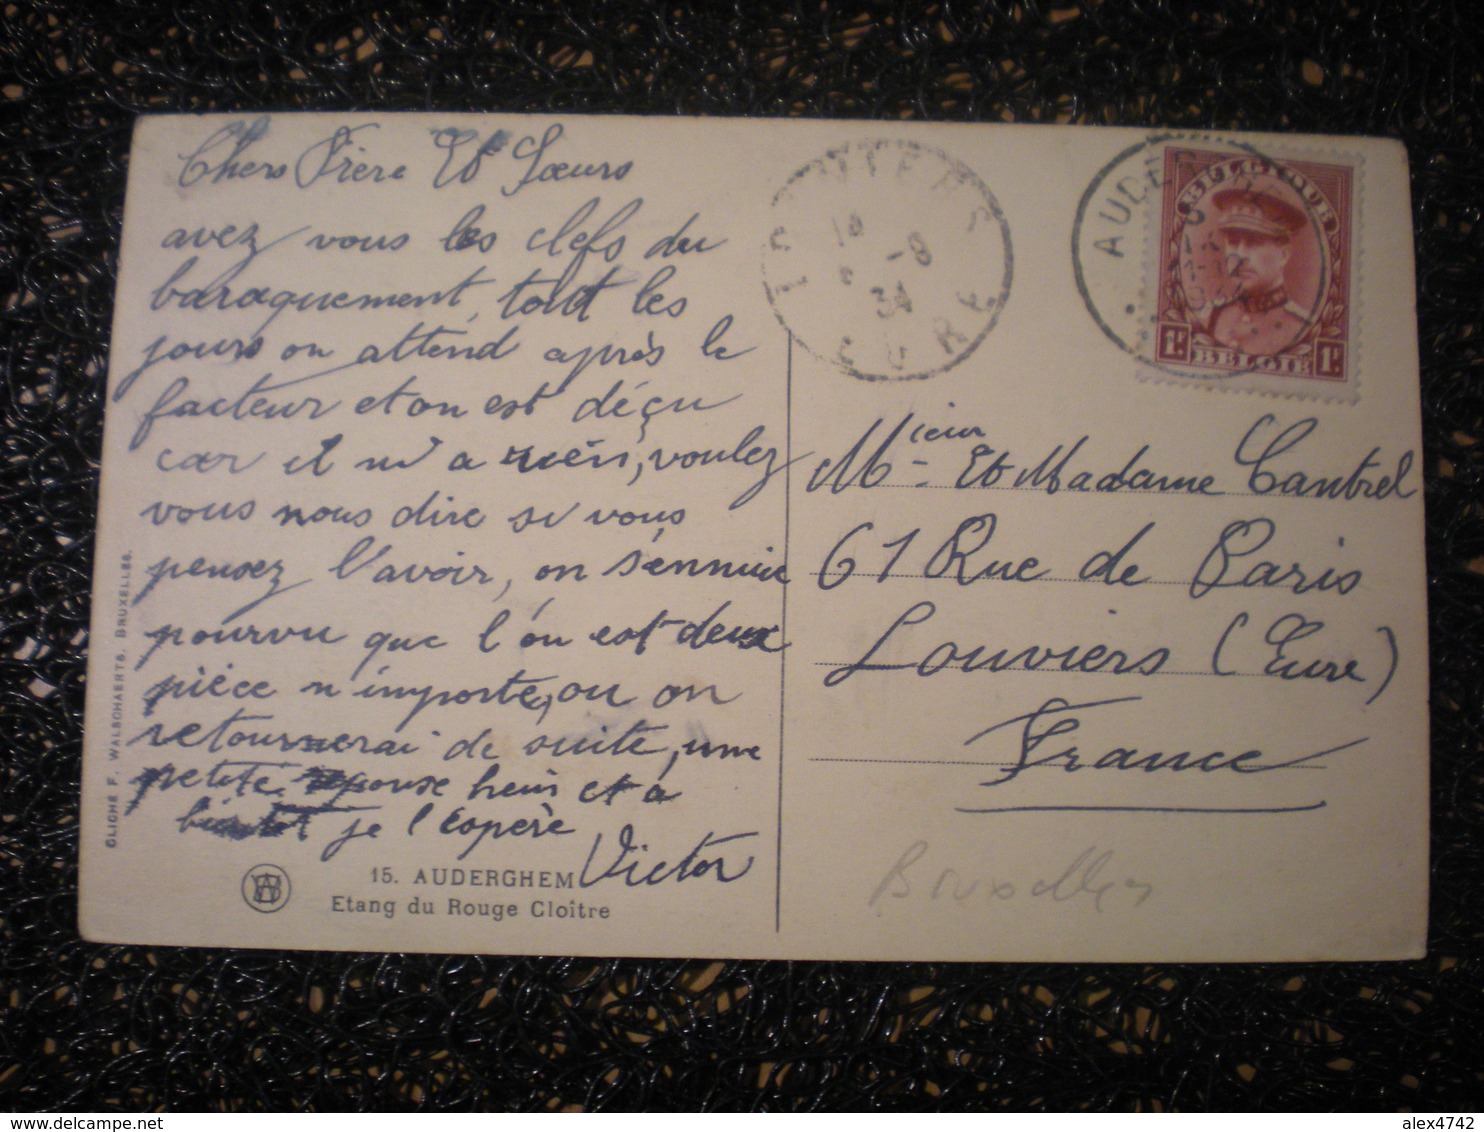 Chers Frère Et Sœurs
avez vous les clefs du
baraquement, tout les
jours on attend après le
facteur et on est déçu
car il n'a rien, voulez
vous nous dire si vous
pensez l'avoir, on s'ennuie
pourvu que l'on est deux
pièce n'importe, ou on
retournerai de suite, une
petite réponse hein et a
bientot je l'éspère
Victor
15. AUDERGHEM
Etang du Rouge Cloître
CLICHÉ F. WALSCHAERTS. BRUXELLES.
LOUVIERS
EURE
34
AUDE
BELGIQUE
1F.
BELGIE
1F.
Mieieur Et Madame Cantrel
61 Rue de Paris
Louviers (Eure)
France
Bruxelles
delcampe.net
alex4742